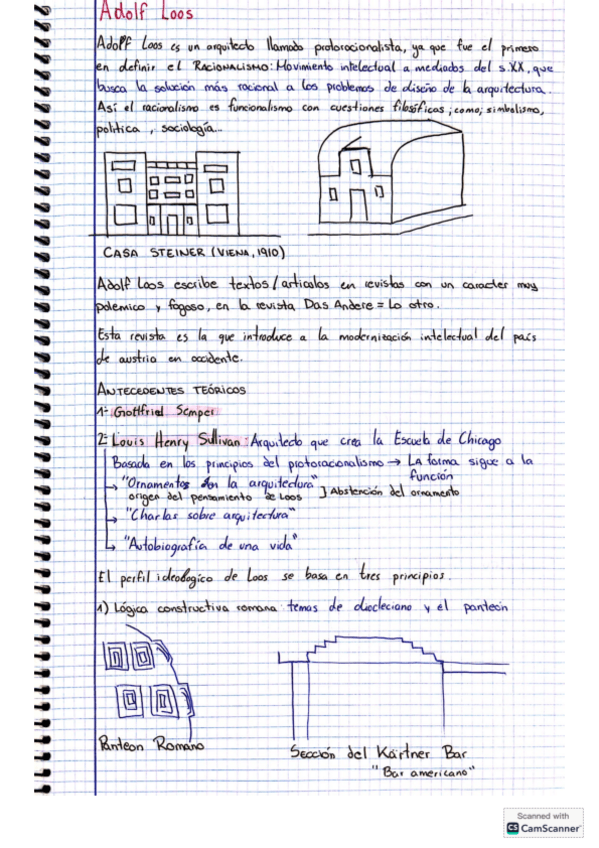 Adolf Loos
Adolf Loos es un arquitecto llamado protoracionalista, ya que fue el primero
en definir el RACIONALISMO: Movimiento intelectual a mediados del s.XX, que
busca la solución más racional a los problemas de diseño de la arquitectura.
Así el racionalismo es funcionalismo con cuestiones filosóficas; como; simbolismo,
política, sociología...
CASA STEINER (VIENA, 1910)
Adolf Loos escribe textos/articulos en revistas con un caracter muy
polemico y fogoso, en la revista Das Andere = Lo otro.
Esta revista es la que introduce a la modernización intelectual del país
de austria en occidente.
ANTECEDENTES TEÓRICOS
1- Gottfried Semper
2- Louis Henry Sullivan: Arquitecto que crea la Escuela de Chicago
Basada en los principios del protoracionalismo → LA forma sigue a la
función
→ "Ornamentos en la arquitectura"
origen del pensamiento de Loos ] Abstención del ornamento
→ "Charlas sobre arquitectura"
↳ "Autobiografía de una vida"
El perfil ideologico de Loos se basa en tres principios.
1) Lógica constructiva romana: temas de diocleciano y el panteón
Panteon Romano
Sección del Kärtner Bar
"Bar americano"
Scanned with
CS CamScanner